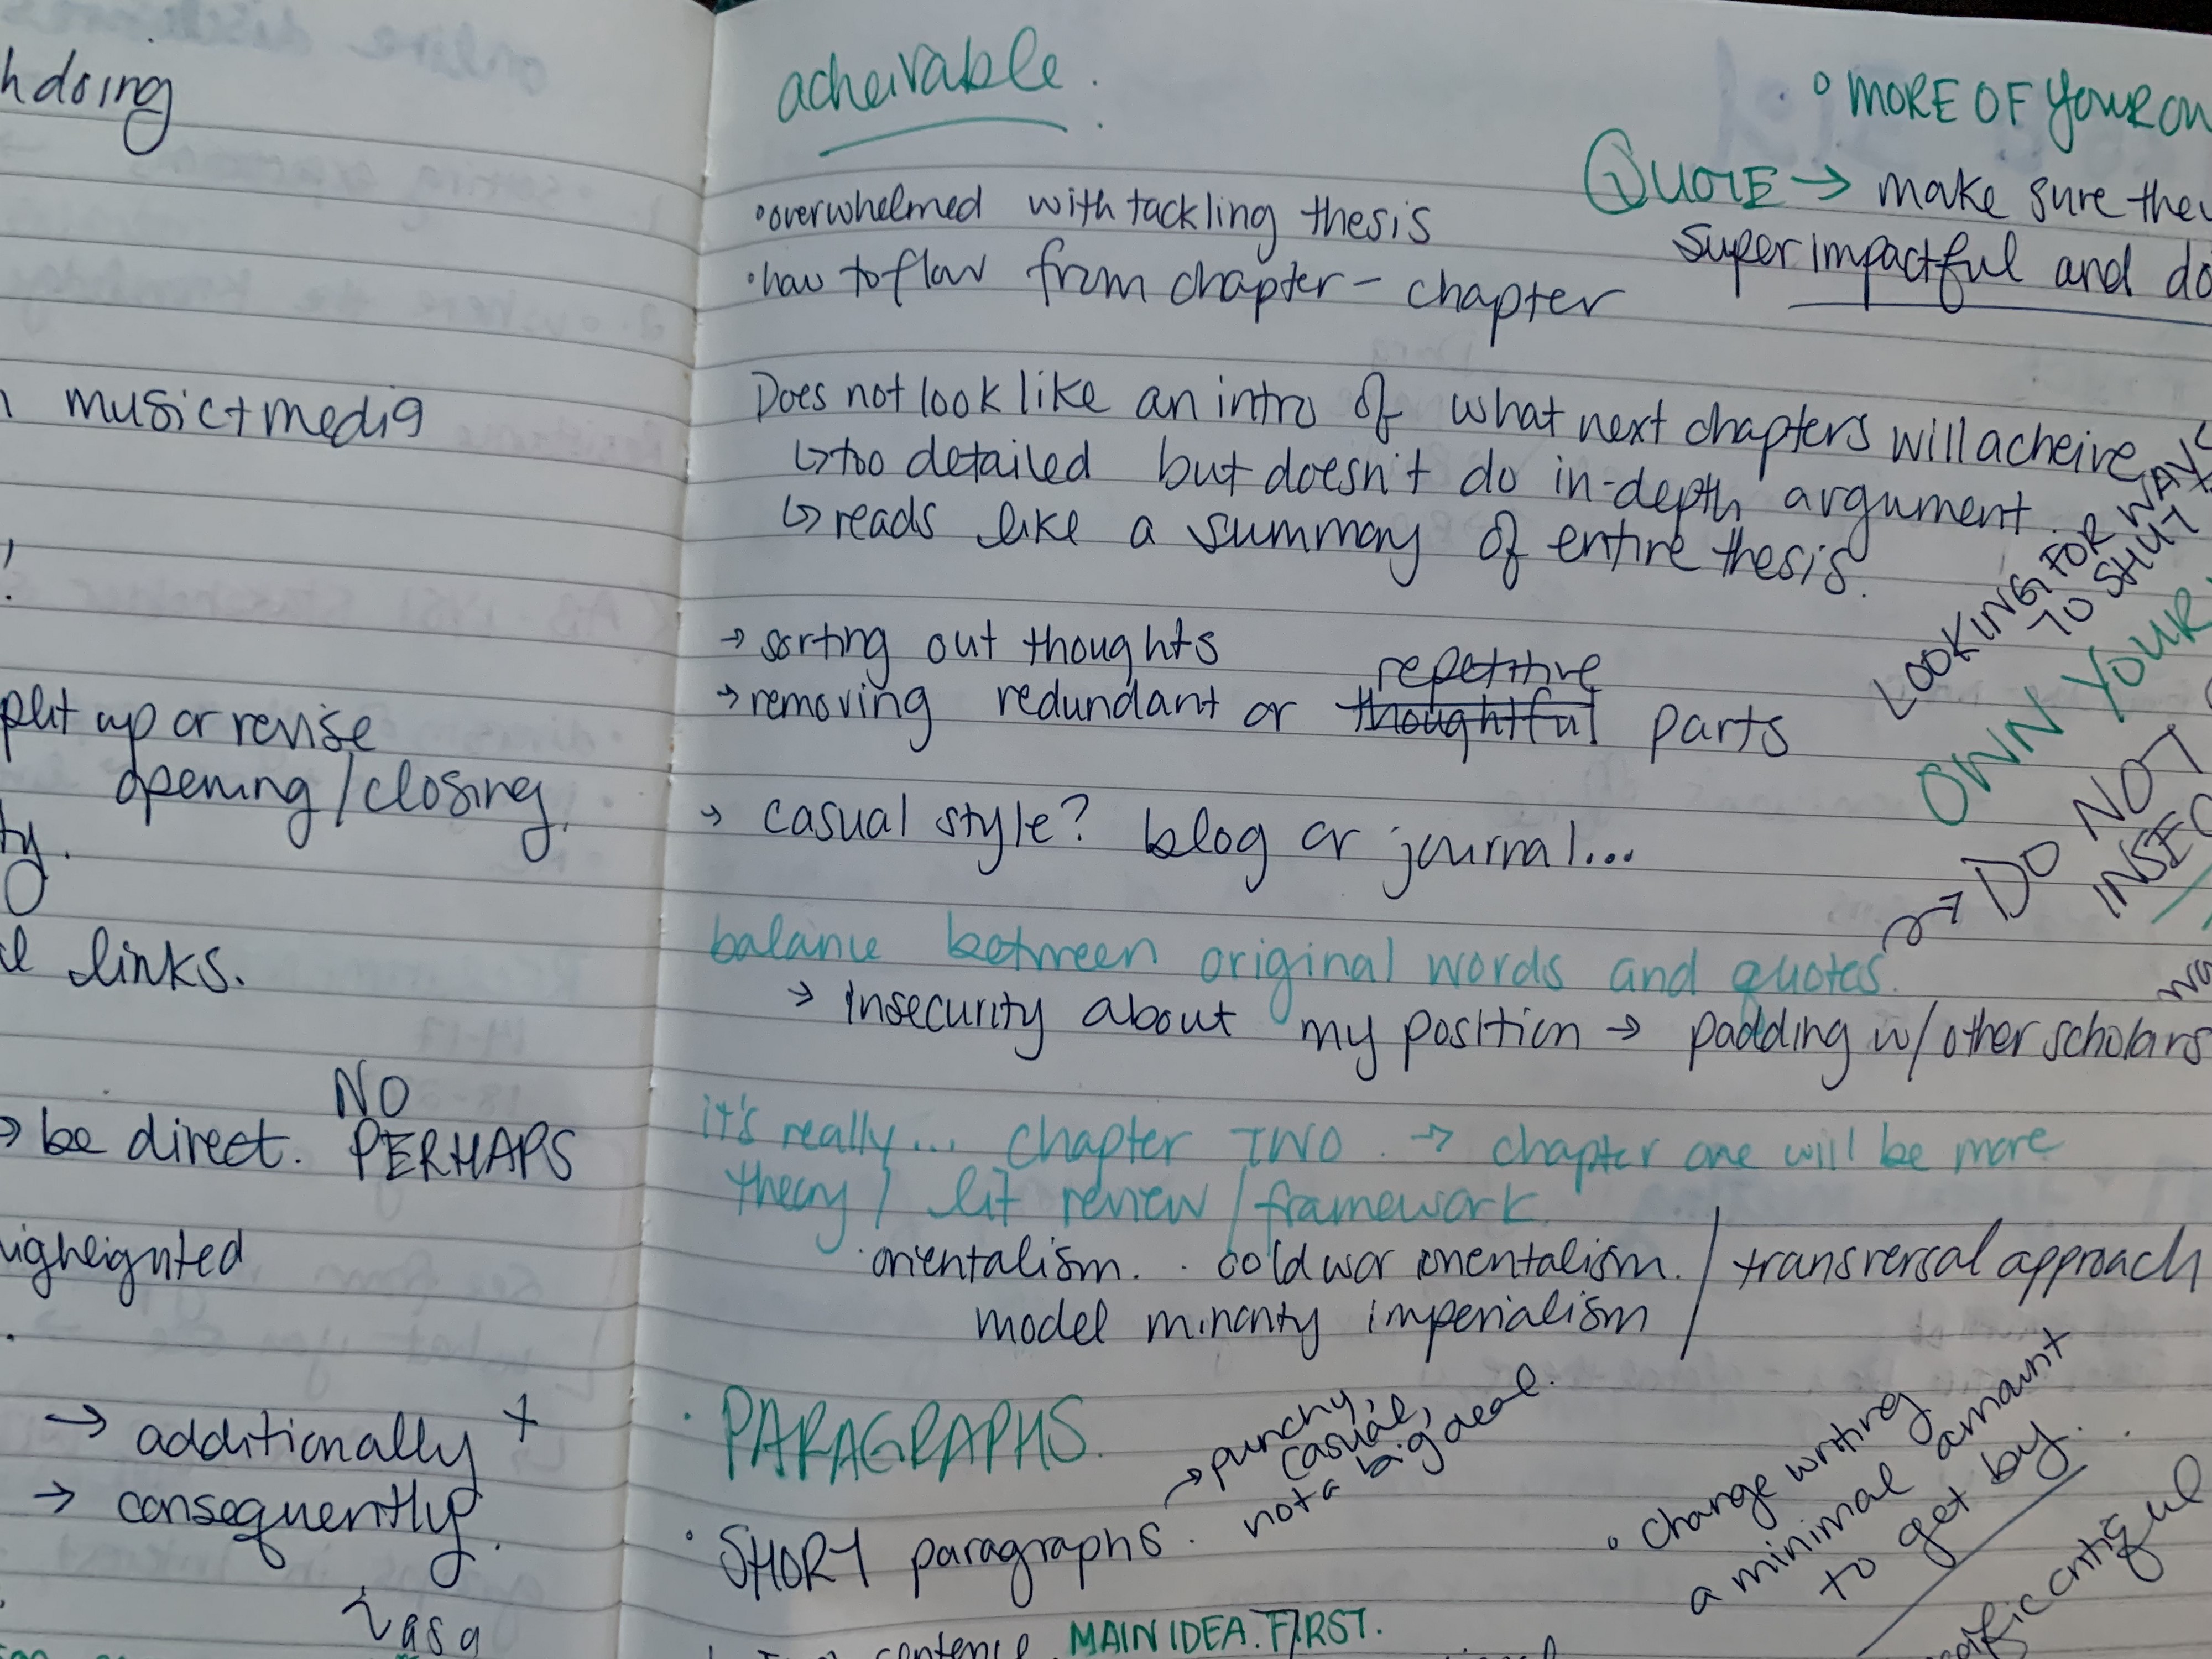 hdoing
music+media
put up or revise
opening/closing.
ty.
links.
NO
→ be direct. PERHAPS
→ additionally +
→ consequently.
as a
acheivable.
• overwhelmed with tackling thesis
• how to flow from chapter - chapter
Does not look like an intro of what next chapters will acheive
↳ too detailed but doesn't do in-depth argument.
↳ reads like a summary of entire thesis.
→ sorting out thoughts
repetitive
→ removing redundant or thoughtful parts
→ casual style? blog or journal...
balance between original words and quotes.
→ insecurity about my position → padding w/other scholars
it's really... chapter TWO. → chapter one will be more
theory / lit review / framework.
• orientalism. • cold war orientalism. / transversal approach
model minority imperialism
• PARAGRAPHS.
• SHORT paragraphs.
→ punchy,
casual,
not a big deal.
sentence. MAIN IDEA. FIRST.
• MORE OF YOUR
QUOTE → make sure
super impactful and do
LOOKING FOR WAYS
TO SHUT
OWN YOUR
→ DO NOT
• change writing
a minimal amount
to get by.